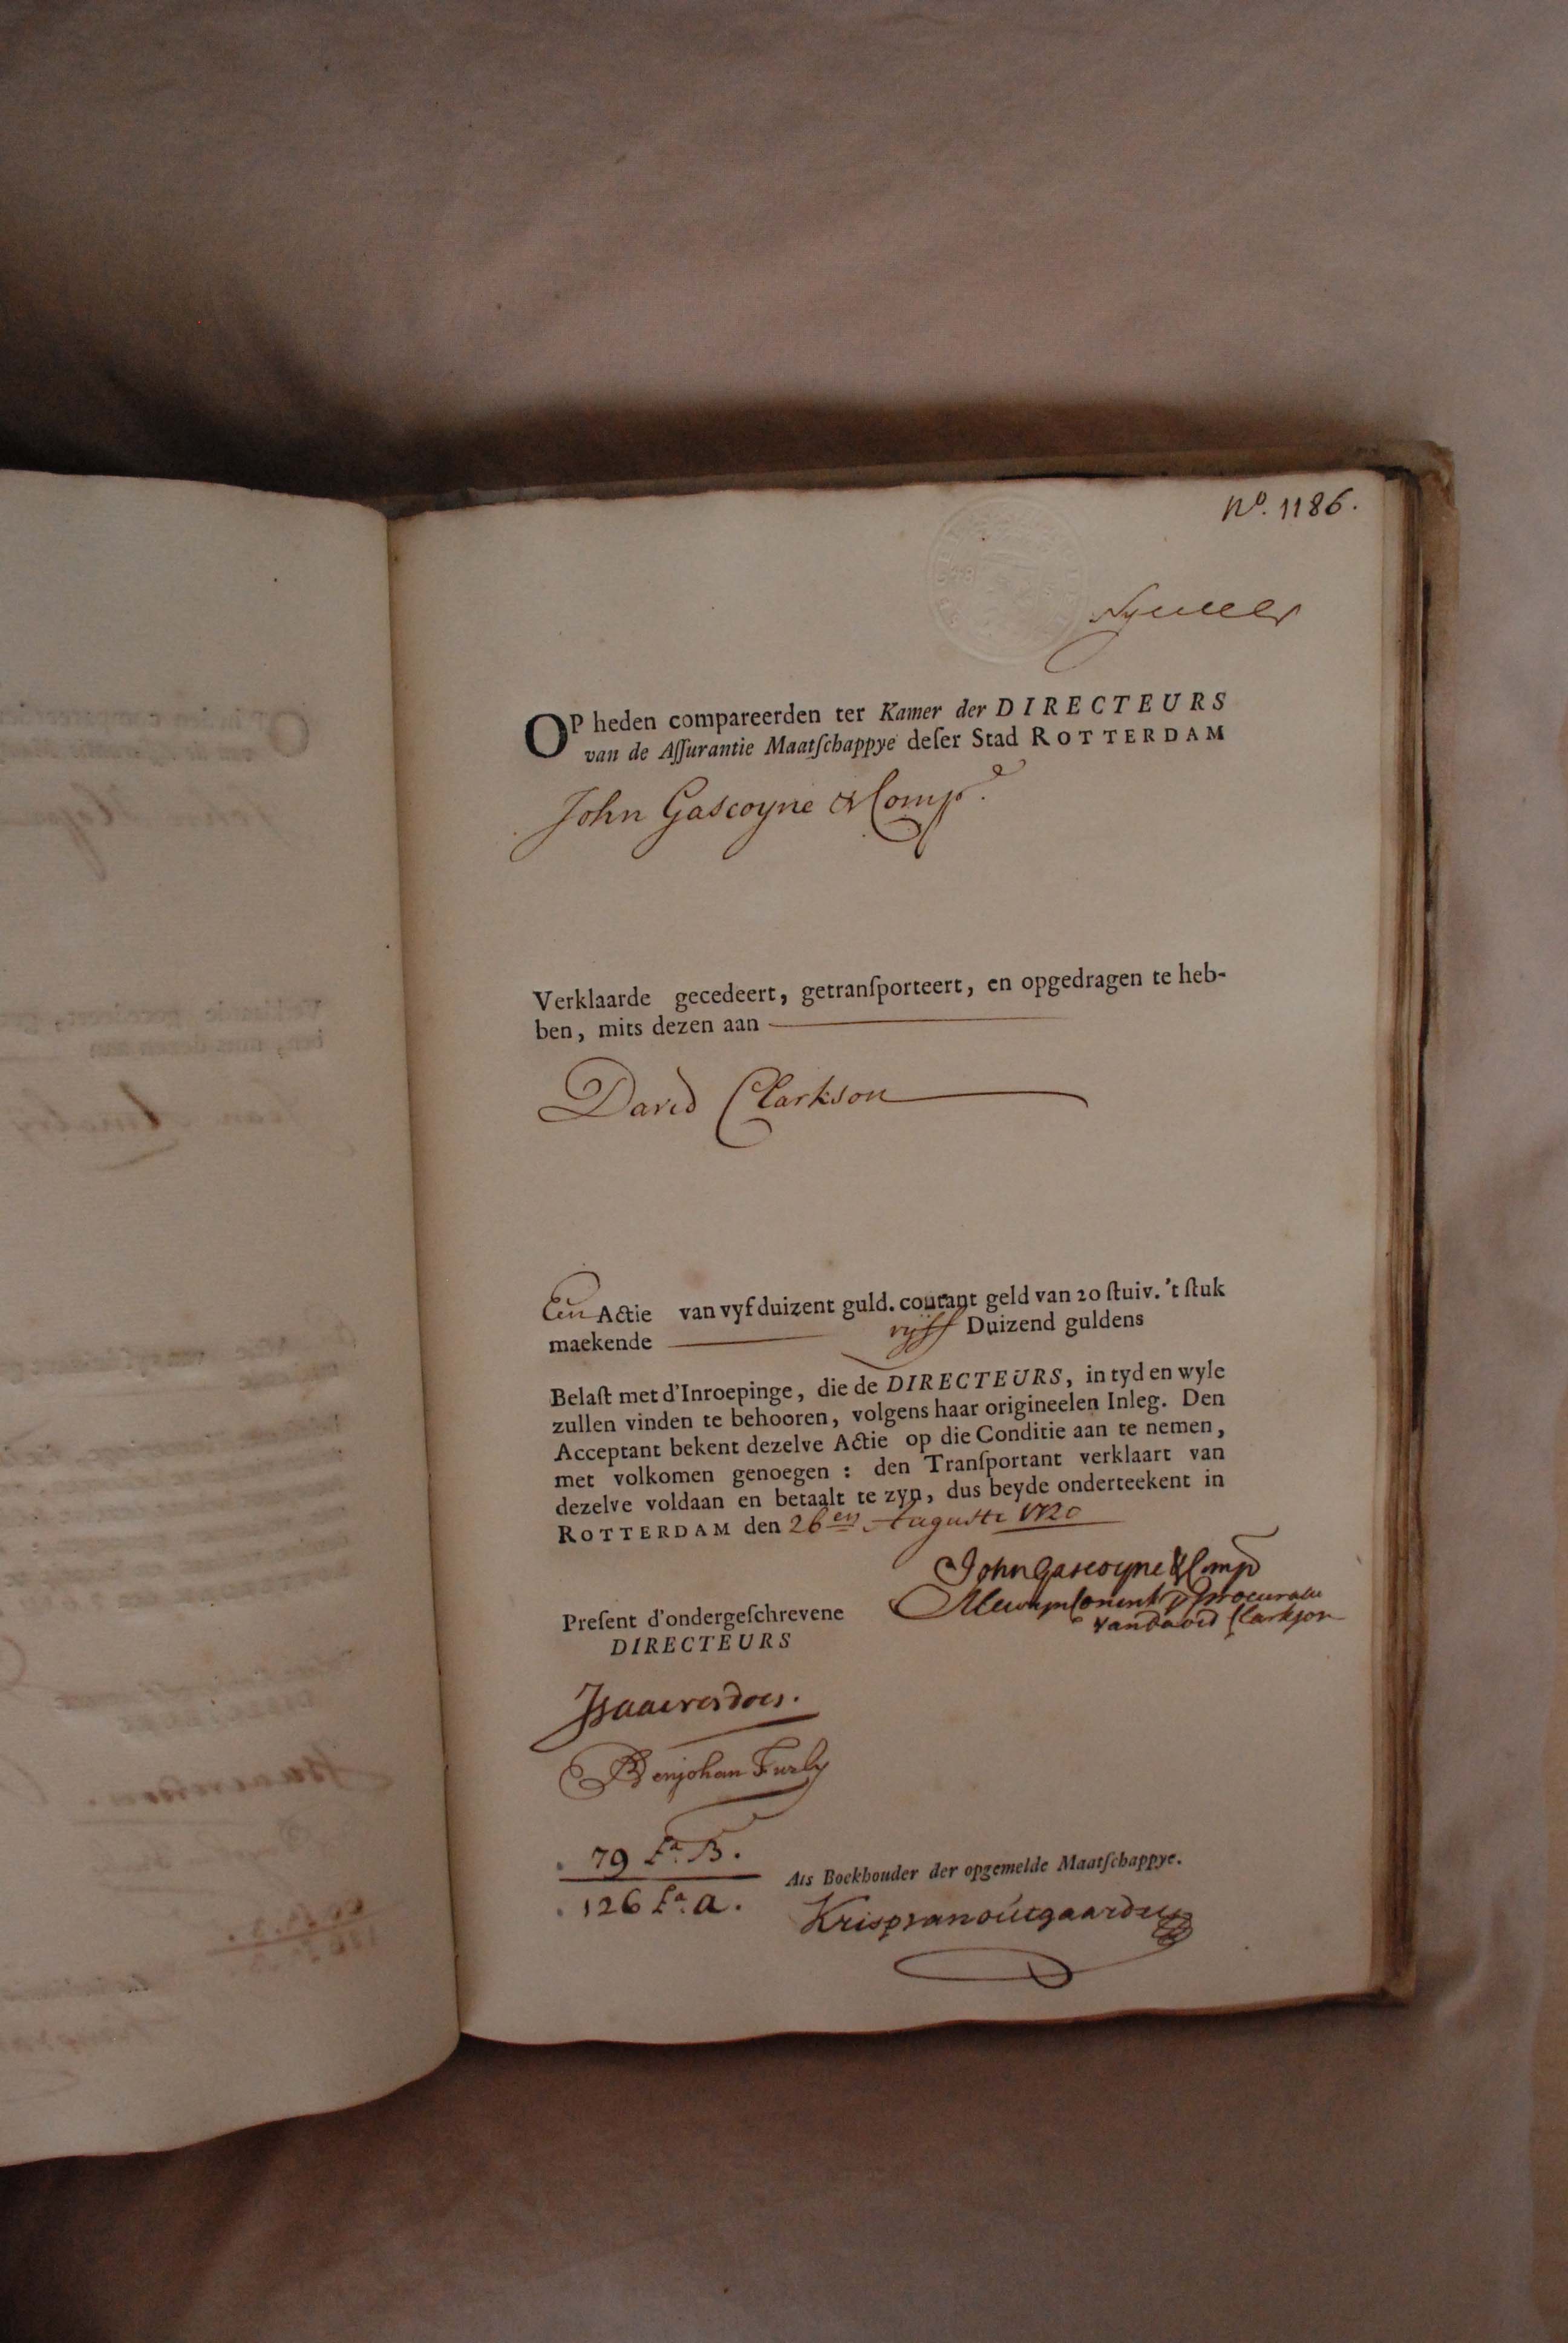 No. 1186.
OP heden compareerden ter Kamer der DIRECTEURS
van de Aſſurantie Maatſchappye deſer Stad ROTTERDAM
John Gascoyne & Compe.
Verklaarde gecedeert, getranſporteert, en opgedragen te heb-
ben, mits dezen aan
David Clarkson
Een Actie van vyf duizent guld. courant geld van 20 ſtuiv. 't ſtuk
maekende vyff Duizend guldens
Belaſt met d'Inroepinge, die de DIRECTEURS, in tyd en wyle
zullen vinden te behooren, volgens haar origineelen Inleg. Den
Acceptant bekent dezelve Actie op die Conditie aan te nemen,
met volkomen genoegen: den Tranſportant verklaart van
dezelve voldaan en betaalt te zyn, dus beyde onderteekent in
ROTTERDAM den 26en Augusti 1720
John Gascoyne & Comp
van David Clarkson
Preſent d'ondergeſchrevene
DIRECTEURS
Isaac verdoes.
Benjohan Furly
79 Fo. B.
126 Fo. a.
Als Boekhouder der opgemelde Maatſchappye.
Krisp van outgaarden